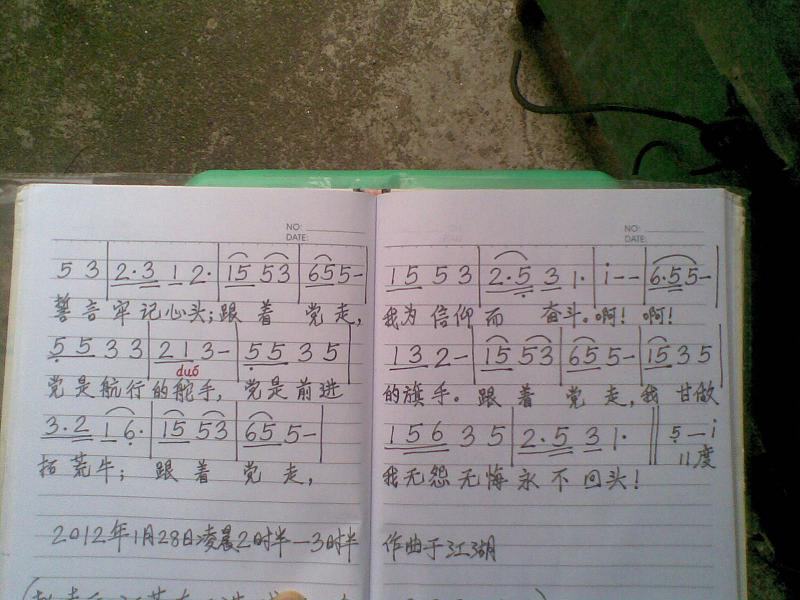 NO:
DATE:
NO:
DATE:
5 3 | 2·3 1 2· | 15 53 | 65 5– | 15 5 3 | 2·5 3 1· | i – – | 6·5 5– |
誓言牢记心头;跟着党走,我为信仰而奋斗。啊!啊!
5 5 3 3 | 2 1 3– | 5 5 3 5 | 1 3 2– | 15 53 | 65 5– | 15 3 5
duó
党是航行的舵手,党是前进的旗手。跟着党走,我甘做
3·2 1 6· | 15 53 | 65 5– | 1 5 6 3 5 | 2·5 3 1· || 5 — i
11度
拓荒牛;跟着党走,我无怨无悔永不回头!
2012年1月28日凌晨2时半—3时半 作曲于江湖